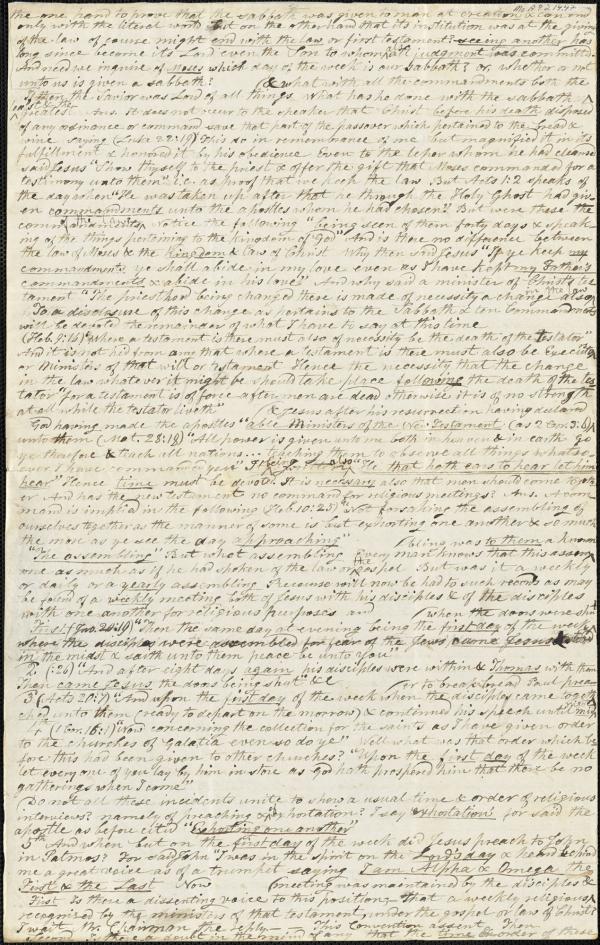 Ms A.9.2.14.42
the one hand to prove that the sabbath was given to man at creation & can end
only with the literal world but on the other hand that its institution was at the giving
of the law of course might end with the law or first testament? seeing another has
long since become its Lord even the Son to whom all judgment was committed
And need we inquire of Moses which day of the week is our Sabbath? or, whether or not
unto us is given a sabbath? & what with all the commandments both the
If then the Savior was Lord of all things What has he done with the sabbath
least & the
greatest Ans. It does not occur to the speaker that Christ before his death disposed
of any ordinance or command save that part of the passover which pertained to the bread &
wine saying (Luke 22:19) This do in remembrance of me but magnified it in its
fulfillment & honored it by his obedience Even to the leper whom he had cleansed
said Jesus "Show thyself to the priest & offer the gift that Moses commanded for a
testimony unto them" i.e. as proof that we keep the law But Acts 1:2 speaks of
the day when "He was taken up after that he through the Holy Ghost had giv-
en commandments unto the apostles whom he had chosen" But were these the
commandments of the law? Notice the following "being seen of them forty days & speak-
ing of the things pertaining to the kingdom of God" And is there no difference between
the law of Moses & the kingdom & law of Christ Why then said Jesus "If ye keep my
commandments ye shall abide in my love even as I have kept my Father's
commandments & abide in his love" And why said a minister of Christ's tes-
tament "The priesthood being changed there is made of necessity a change also
in the law"
To a disclosure of this change as pertains to the Sabbath & ten Commandments
will be devoted the remainder of what I have to say at this time
(Heb. 9:16) "Where a testament is there must also of necessity be the death of the testator"
And it is not hid from any that where a testament is there must also be Executors
or Ministers of that will or testament Hence the necessity that the change
in the law whatever it might be should take place following the death of the tes-
tator "For a testament is of force after men are dead otherwise it is of no strength
at all while the testator liveth"
& Jesus after his resurrection having declared
God having made the apostles "able Ministers of the New Testament (as 2 Cor 3:6)
unto them (Mat. 28:18) "All power is given unto me both in heaven & in earth go
ye therefore & teach all nations... teaching them to observe all things whatso-
ever I have commanded you" "He that hath ears to hear let him
hear" Hence time must be devoted. It is necessary also that men should come togeth-
er And has the new testament no command for religious meetings? Ans. A com-
mand is implied in the following Heb. 10:25 "Not forsaking the assembling of
ourselves together as the manner of some is but exhorting one another & so much
the more as ye see the day approaching"
bling was to them a known
"The assembling" But what assembling Every man knows that this assem-
one as much as if he had spoken of the law or the gospel But was it a weekly
or daily or a yearly assembling Recourse will now be had to such record as may
be found of a weekly meeting both of Jesus with his disciples & of the disciples
with one another for religious purposes and
when the doors were shut
First (Jno. 20:19) "Then the same day at evening being the first day of the week
where the disciples were assembled for fear of the Jews came Jesus & stood
in the midst & saith unto them peace be unto you"
2 (:26) "And after eight days again his disciples were within & Thomas with them
Then came Jesus the doors being shut" &c
er to break bread Paul prea-
3 (Acts 20:7) "And upon the first day of the week when the disciples came togeth-
ched unto them (ready to depart on the morrow) & continued his speech until midnight
4 (1 Cor. 16:1) "Now concerning the collection for the saints as I have given order
to the churches of Galatia even so do ye" Well what was that order which be-
fore this had been given to other churches? "Upon the first day of the week
let every one of you lay by him in store as God hath prospered him that there be no
gatherings when I come"
Do not all these incidents unite to show a usual time & order of religious
interviews? namely of preaching & exhortation? I say exhortation for said the
apostle as before cited "Exhorting one another"
5th And when but on the first day of the week did Jesus preach to John
in Patmos? For said John "I was in the spirit on the Lord's day & heard behind
me a great voice as of a trumpet saying I am Alpha & Omega the
First & the Last Now
meeting was maintained by the disciples &
First Is there a dissenting voice to this position That a weekly religious
recognized by the ministers of that testament under the gospel or law of Christ?
I wait Mr Chairman the reply— This Convention assent Then
Second is there a doubt in the mind of any that the time & order of these